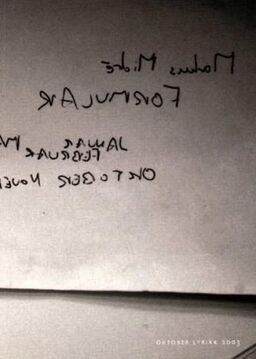 Markus Midré
FORMULAR
JANUAR
FEBRUAR
OKTOBER NOVE
OKTOBER LYRIKK 2003